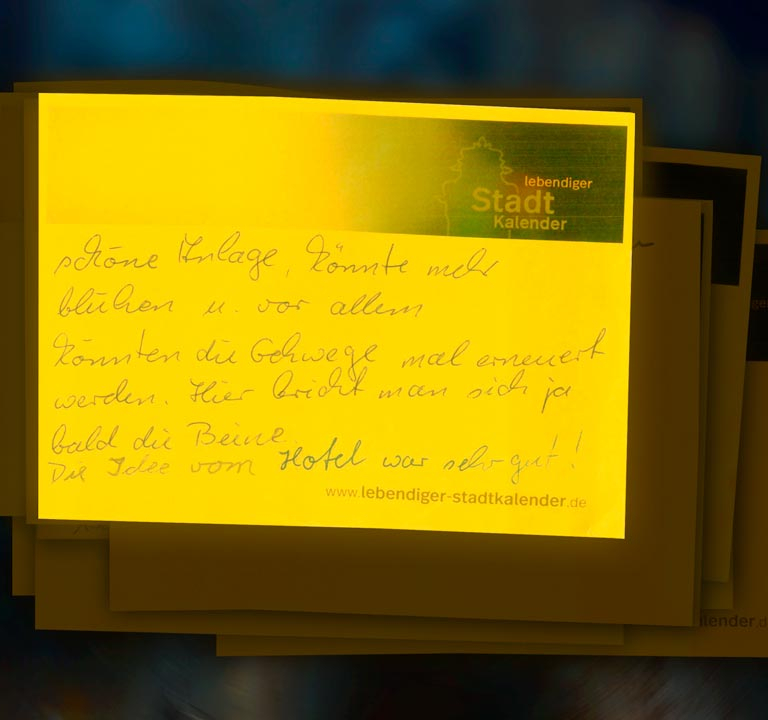 lebendiger
Stadt
Kalender
schöne Anlage, könnte mehr
blühen u. vor allem
könnten die Gehwege mal erneuert
werden. Hier bricht man sich ja
bald die Beine.
Die Idee vom Hotel war sehr gut!
www.lebendiger-stadtkalender.de
lender.d